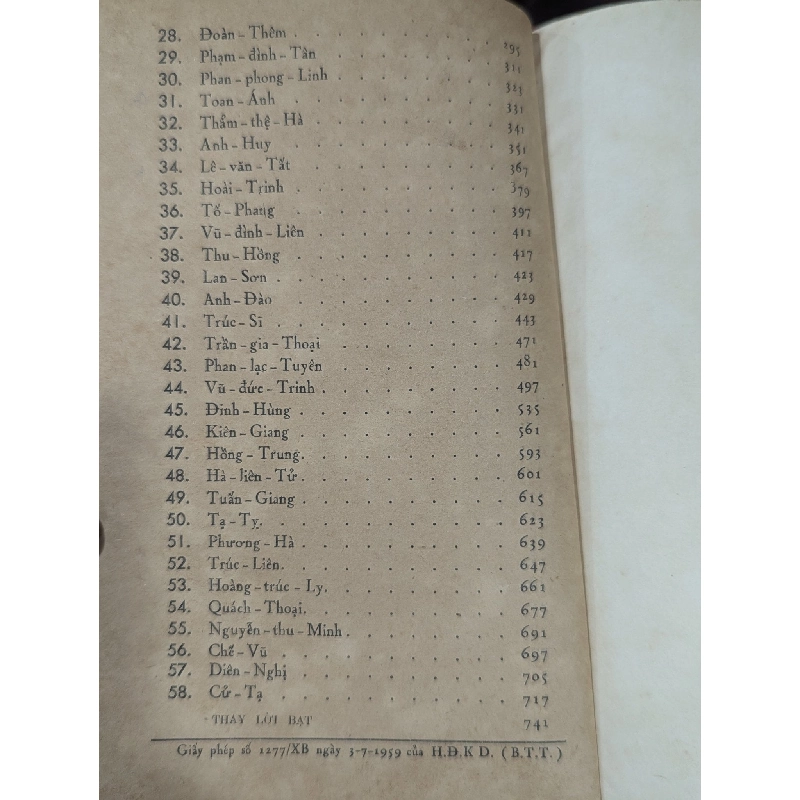 28. Đoàn - Thêm . . . . . . . . 295
29. Phạm - đình - Tân . . . . . . . 311
30. Phan - phong - Linh . . . . . . . 323
31. Toan - Ánh . . . . . . . . 331
32. Thẩm - thệ - Hà . . . . . . . . 341
33. Anh - Huy . . . . . . . . 351
34. Lê - văn - Tất . . . . . . . . 367
35. Hoài - Trinh . . . . . . . . 379
36. Tố - Phang . . . . . . . . 397
37. Vũ - đình - Liên . . . . . . . . 411
38. Thu - Hồng . . . . . . . . 417
39. Lan - Sơn . . . . . . . . 423
40. Anh - Đào . . . . . . . . 429
41. Trúc - Sĩ . . . . . . . . 443
42. Trần - gia - Thoại . . . . . . . 471
43. Phan - lạc - Tuyên . . . . . . . 481
44. Vũ - đức - Trinh . . . . . . . 497
45. Đinh - Hùng . . . . . . . . 535
46. Kiên - Giang . . . . . . . . 561
47. Hồng - Trung . . . . . . . . 593
48. Hà - liên - Tử . . . . . . . . 601
49. Tuấn - Giang . . . . . . . . 615
50. Tạ - Tỵ . . . . . . . . 623
51. Phương - Hà . . . . . . . . 639
52. Trúc - Liên . . . . . . . . 647
53. Hoàng - trúc - Ly . . . . . . . 661
54. Quách - Thoại . . . . . . . . 677
55. Nguyễn - thu - Minh . . . . . . . 691
56. Chế - Vũ . . . . . . . . 697
57. Diên - Nghị . . . . . . . . 705
58. Cử - Tạ . . . . . . . . 717
THAY LỜI BẠT 741
Giấy phép số 1277/XB ngày 3-7-1959 của H.Đ.K D. ( B.T.T. )